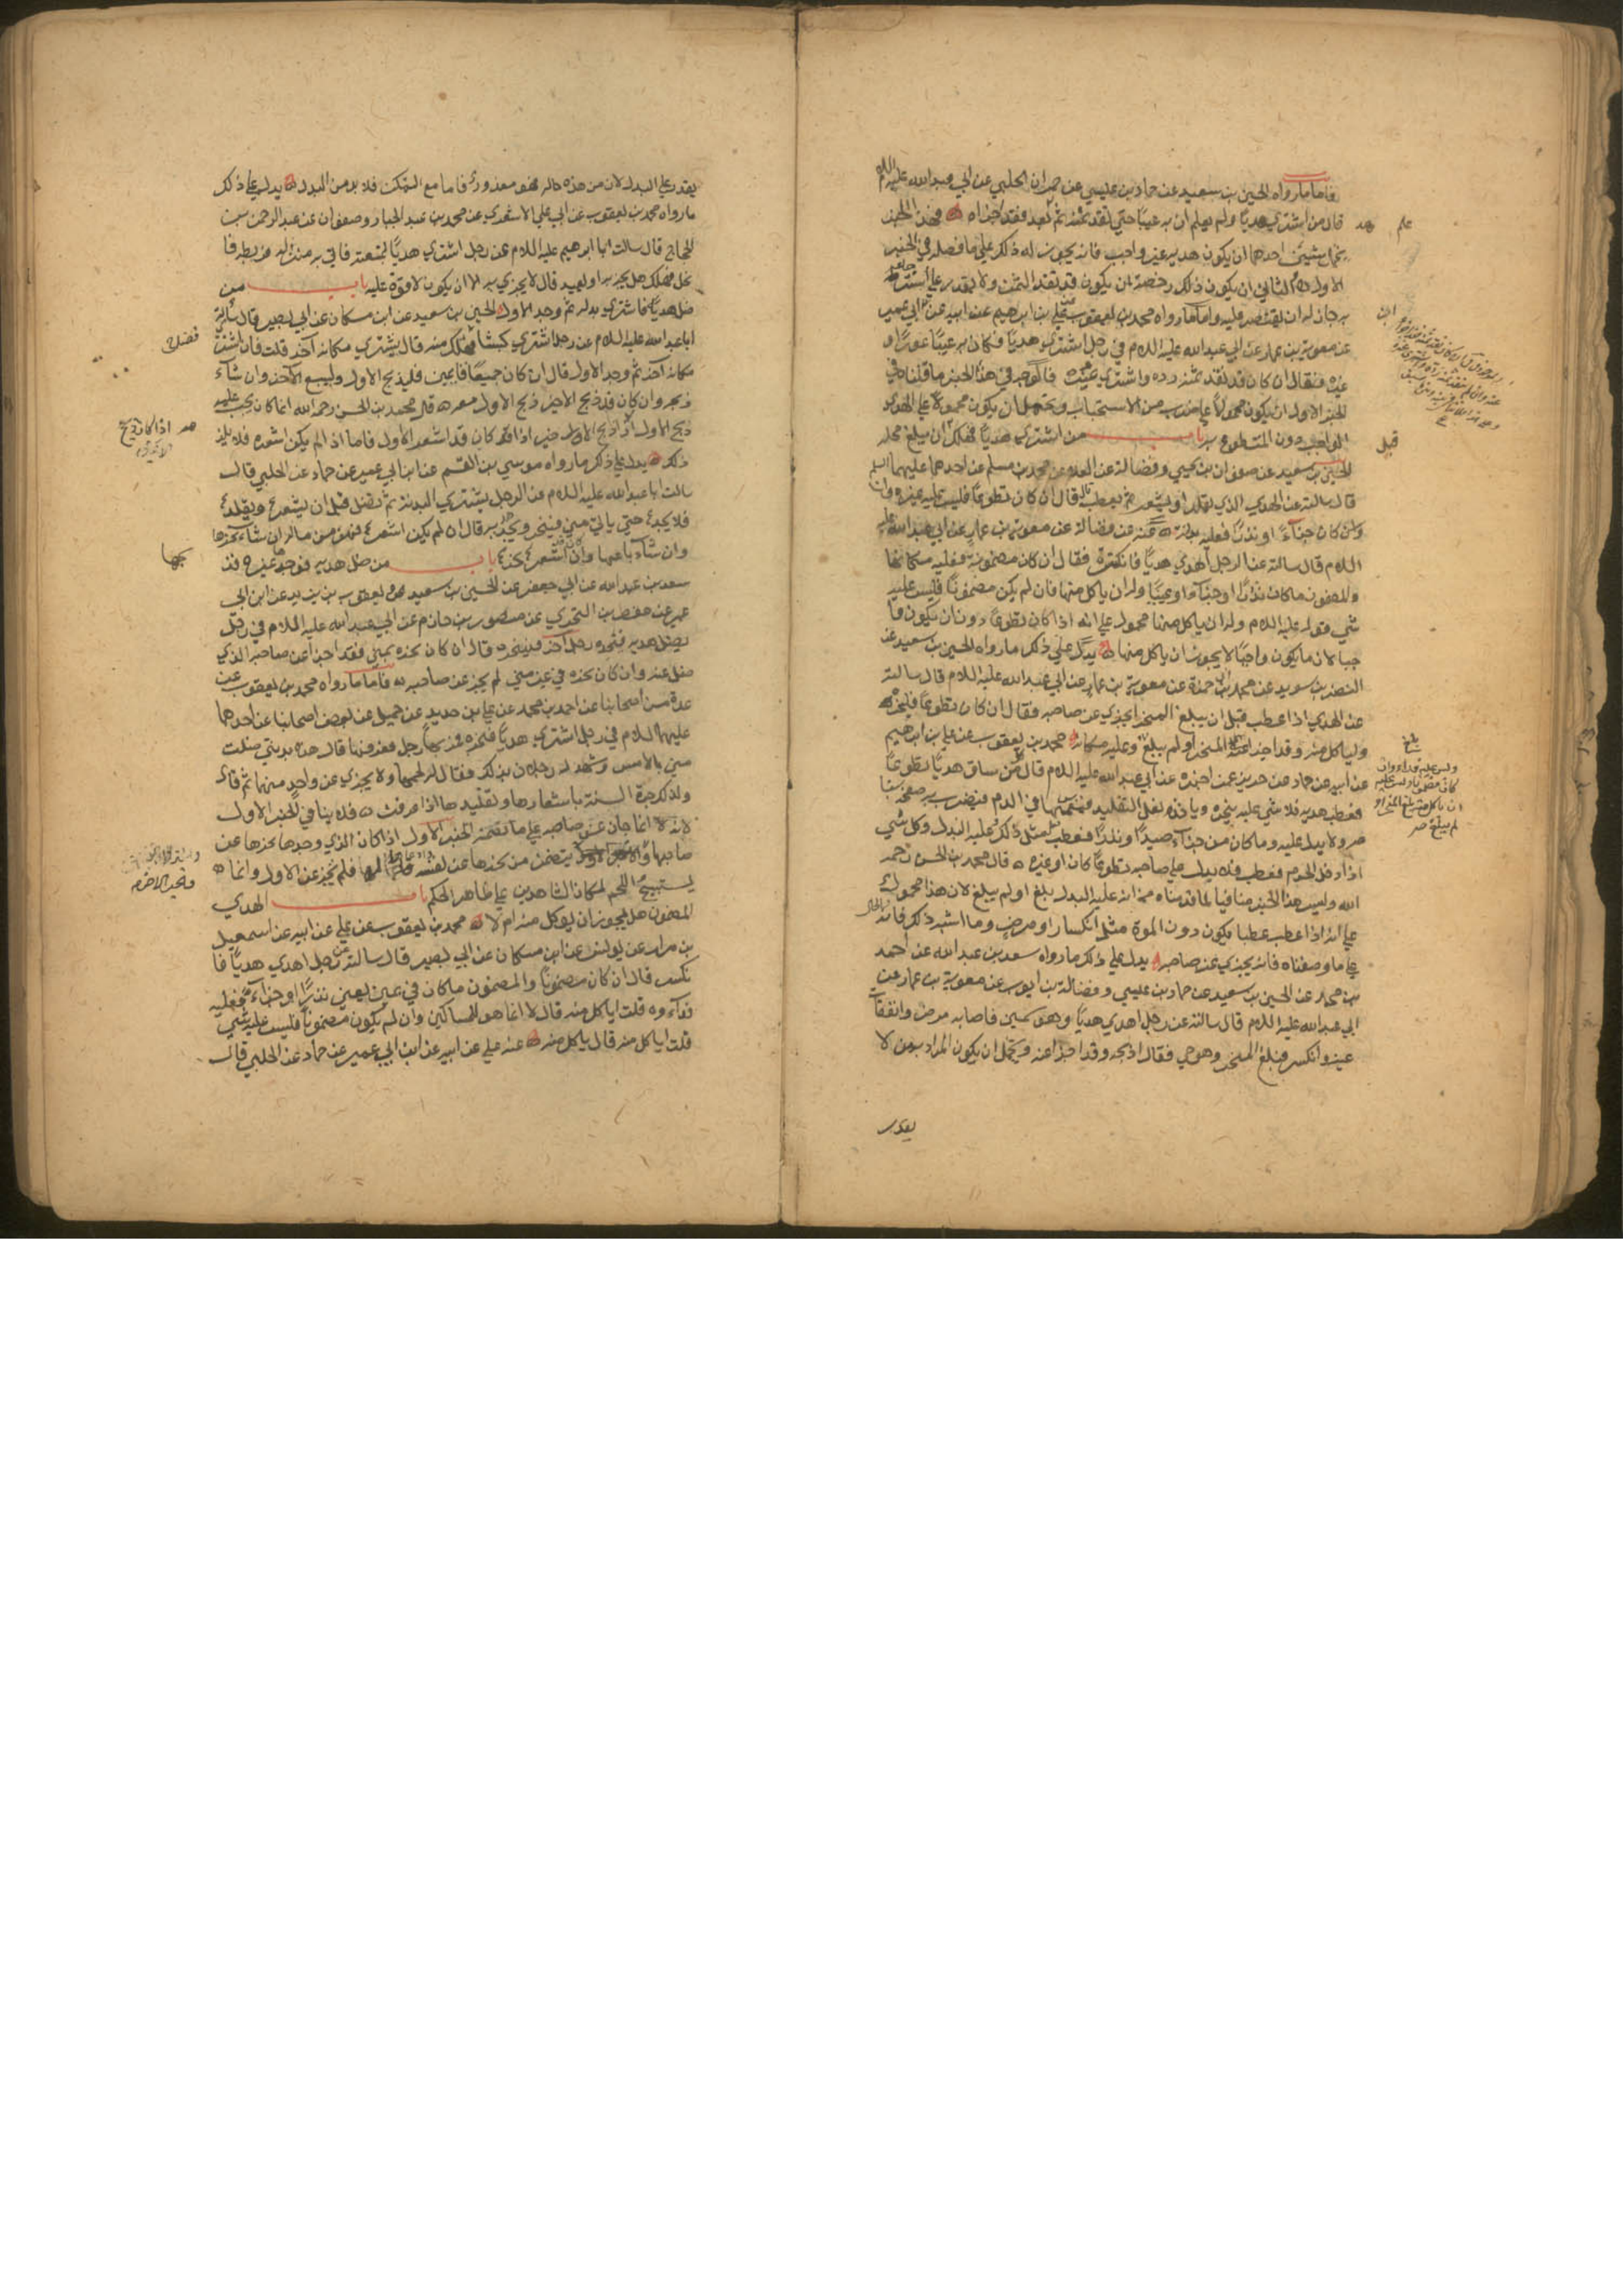 فاما ما رواه الحسين بن سعيد عن حماد بن عيسى عن عمران الحلبي عن ابي عبد الله عليه السلام
قال من اشترى هديا ولم يعلم ان به عيبا حتى نقد ثمنه ثم بعد فقد اجزاه فهذا الخبر
يحتمل شيئين احدهما ان يكون هديه غير واجب فانه يجوز له ذلك على ما فصله في الخبر
الاول والثاني ان يكون ذلك رخصة لمن يكون قد نقد الثمن ولا يقدر على استرجاعه
به جاز له ان يقتصر عليه واما ما رواه محمد بن يعقوب عن علي بن ابرهيم عن ابيه عن ابن ابي عمير
عن معوية بن عمار عن ابي عبد الله عليه السلام في رجل اشترى هديا فكان به عيبا عورا او
غيره فقال ان كان قد نقد ثمنه رده واشترى غيره فالوجه في هذا الخبر ما قلناه في
الخبر الاول ان يكون محمولا على ضرب من الاستحباب ويحتمل ان يكون محمولا على الهدي
الواجب دون المتطوع به باب من اشترى هديا فهلك قبل ان يبلغ محله
الحسين بن سعيد عن صفوان بن يحيى وفضالة عن العلا عن محمد بن مسلم عن احدهما عليهما السلم
قال سالته عن الهدي الذي يقلد او يشعر ثم يعطب قال ان كان تطوعا فليس عليه غيره وان
كان جزاء او نذرا فعليه بدله عنه عن فضالة عن معوية بن عمار عن ابي عبد الله عليه
السلام قال سالته عن الرجل اهدى هديا فانكسرت فقال ان كان مضمونة فعليه مكانها
والمضمون ما كان نذرا او جزاء او يمينا وله ان ياكل منها فان لم يكن مضمونا فليس عليه
شي قوله عليه السلام وله ان ياكل منها محمول على انه اذا كان تطوعا دون ان يكون وا
جبا لان ما يكون واجبا لا يجوز ان ياكل منها يدل على ذلك ما رواه الحسين بن سعيد عن
النضر بن سويد عن محمد بن ابي حمزة عن معوية بن عمار عن ابي عبد الله عليه السلام قال سالته
عن الهدي اذا عطب قبل ان يبلغ المنحر ايجزي عن صاحبه فقال ان كان تطوعا فلينحره
ولياكل منه وقد اجزا عنه بلغ المنحر او لم يبلغ وعليه مكانه محمد بن يعقوب عن علي بن ابرهيم
عن ابيه عن حماد عن حريز عمن اخبره عن ابي عبد الله عليه السلام قال من ساق هديا تطوعا
فعطب هديه فلا شي عليه ينحره وياخذ نعل التقليد فيغمسها في الدم فيضرب به صفحة سنا
مه ولا بدل عليه وما كان من جزاء صيد او نذر فعطب فعل مثل ذلك وعليه البدل وكل شي
اذا دخل الحرم فعطب فلا بدل على صاحبه تطوعا كان او غيره قال محمد بن الحسن رحمه
الله وليس هذا الخبر منافيا لما قدمناه من ان عليه البدل بلغ او لم يبلغ لان هذا محمول
على انه اذا عطب عطبا يكون دون الموت مثل انكسار او مرض وما اشبه ذلك فانه
على ما وصفناه فانه يجزي عن صاحبه يدل على ذلك ما رواه سعد بن عبد الله عن احمد
بن محمد عن الحسين بن سعيد عن حماد بن عيسى وفضالة بن ايوب عن معوية بن عمار عن
ابي عبد الله عليه السلام قال سالته عن رجل اهدى هديا وهو سمين فاصابه مرض وانفقات
عينه وانكسر فبلغ المنحر وهو حي فقال اذبحه وقد اجزا عنه ويحتمل ان يكون المراد به من لا
يقدر
علم
قبل
يقدر على البدل لان من هذه حاله فهو معذور فاما مع التمكن فلا بد من البدل يدل على ذلك
ما رواه محمد بن يعقوب عن ابي علي الاشعري عن محمد بن عبد الجبار وصفوان عن عبد الرحمن بن
الحجاج قال سالت ابا ابرهيم عليه السلام عن رجل اشترى هديا لمتعته فاتى به منزله فربطه فا
نحل فهلك هل يجزيه او يعيد قال لا يجزيه الا ان يكون لا قوة عليه باب من
ضل هديه فاشترى بدله ثم وجد الاول الحسين بن سعيد عن ابن مسكان عن ابي بصير قال سالت
ابا عبد الله عليه السلام عن رجل اشترى كبشا فهلك منه قال يشتري مكانه آخر قلت فان اشترى
مكانه آخر ثم وجد الاول قال ان كان جميعا قايمين فليذبح الاول وليبع الاخر وان شاء
ذبحه وان كان قد ذبح الاخير ذبح الاول معه قال محمد بن الحسن رحمه الله انما كان يجب عليه
ذبح الاول اذا ذبح الاخير اذا قد كان قد اشعر الاول فاما اذا لم يكن اشعره فلا يلزمه
ذلك يدل على ذلك ما رواه موسى بن القسم عن ابن ابي عمير عن حماد عن الحلبي قال
سالت ابا عبد الله عليه السلام عن الرجل يشتري البدنة ثم تضل قبل ان يشعرها ويقلدها
فلا يجدها حتى ياتي منى فينحر ويجد هديه قال ان لم يكن اشعرها فهي من ماله ان شاء نحرها
وان شاء باعها وان كان اشعرها نحرها باب من ضل هديه فوجده غيره فذ
سعد بن عبد الله عن ابي جعفر عن الحسين بن سعيد عن يعقوب بن يزيد عن ابن ابي
عمير عن حفص بن البختري عن منصور بن حازم عن ابي عبد الله عليه السلام في رجل
يضل هديه فيجده رجل آخر فينحره قال ان كان نحره بمنى فقد اجزا عن صاحبه الذي
ضل عنه وان كان نحره في غير منى لم يجز عن صاحبه فاما ما رواه محمد بن يعقوب عن
عدة من اصحابنا عن احمد بن محمد عن علي بن حديد عن جميل عن بعض اصحابنا عن احدهما
عليهما السلام في رجل اشترى هديا فنحره فمر بها رجل فعرفها فقال هذه بدنتي ضلت
مني بالامس وشهد له رجلان بذلك فقال له لحمها ولا يجزي عن واحد منهما ثم قال
ولذلك جرت السنة باشعارها وتقليدها اذا عرفت فلا ينافي الخبر الاول
لانه انما جاز عن صاحبه على ما تضمنه الخبر الاول اذا كان الذي وجدها نحرها عن
صاحبها يتضمن من نحرها عن نفسه فلم يجز عن الاول وانما
يستبيح اللحم لمكان الشاهدين على ظاهر الحكم باب الهدي
المضمون هل يجوز ان يوكل منه ام لا محمد بن يعقوب عن علي عن ابيه عن اسمعيل
بن مرار عن يونس عن ابن مسكان عن ابي بصير قال سالته عن رجل اهدى هديا فا
نكسر قال ان كان مضمونا والمضمون ما كان في عين يعني نذرا او جزاء فعليه
فداوه قلت اياكل منه قال لا انما هو للمساكين وان لم يكون مضمونا فليس عليه شي
قلت اياكل منه قال ياكل منه عنه علي عن ابيه عن ابن ابي عمير عن حماد عن الحلبي قال